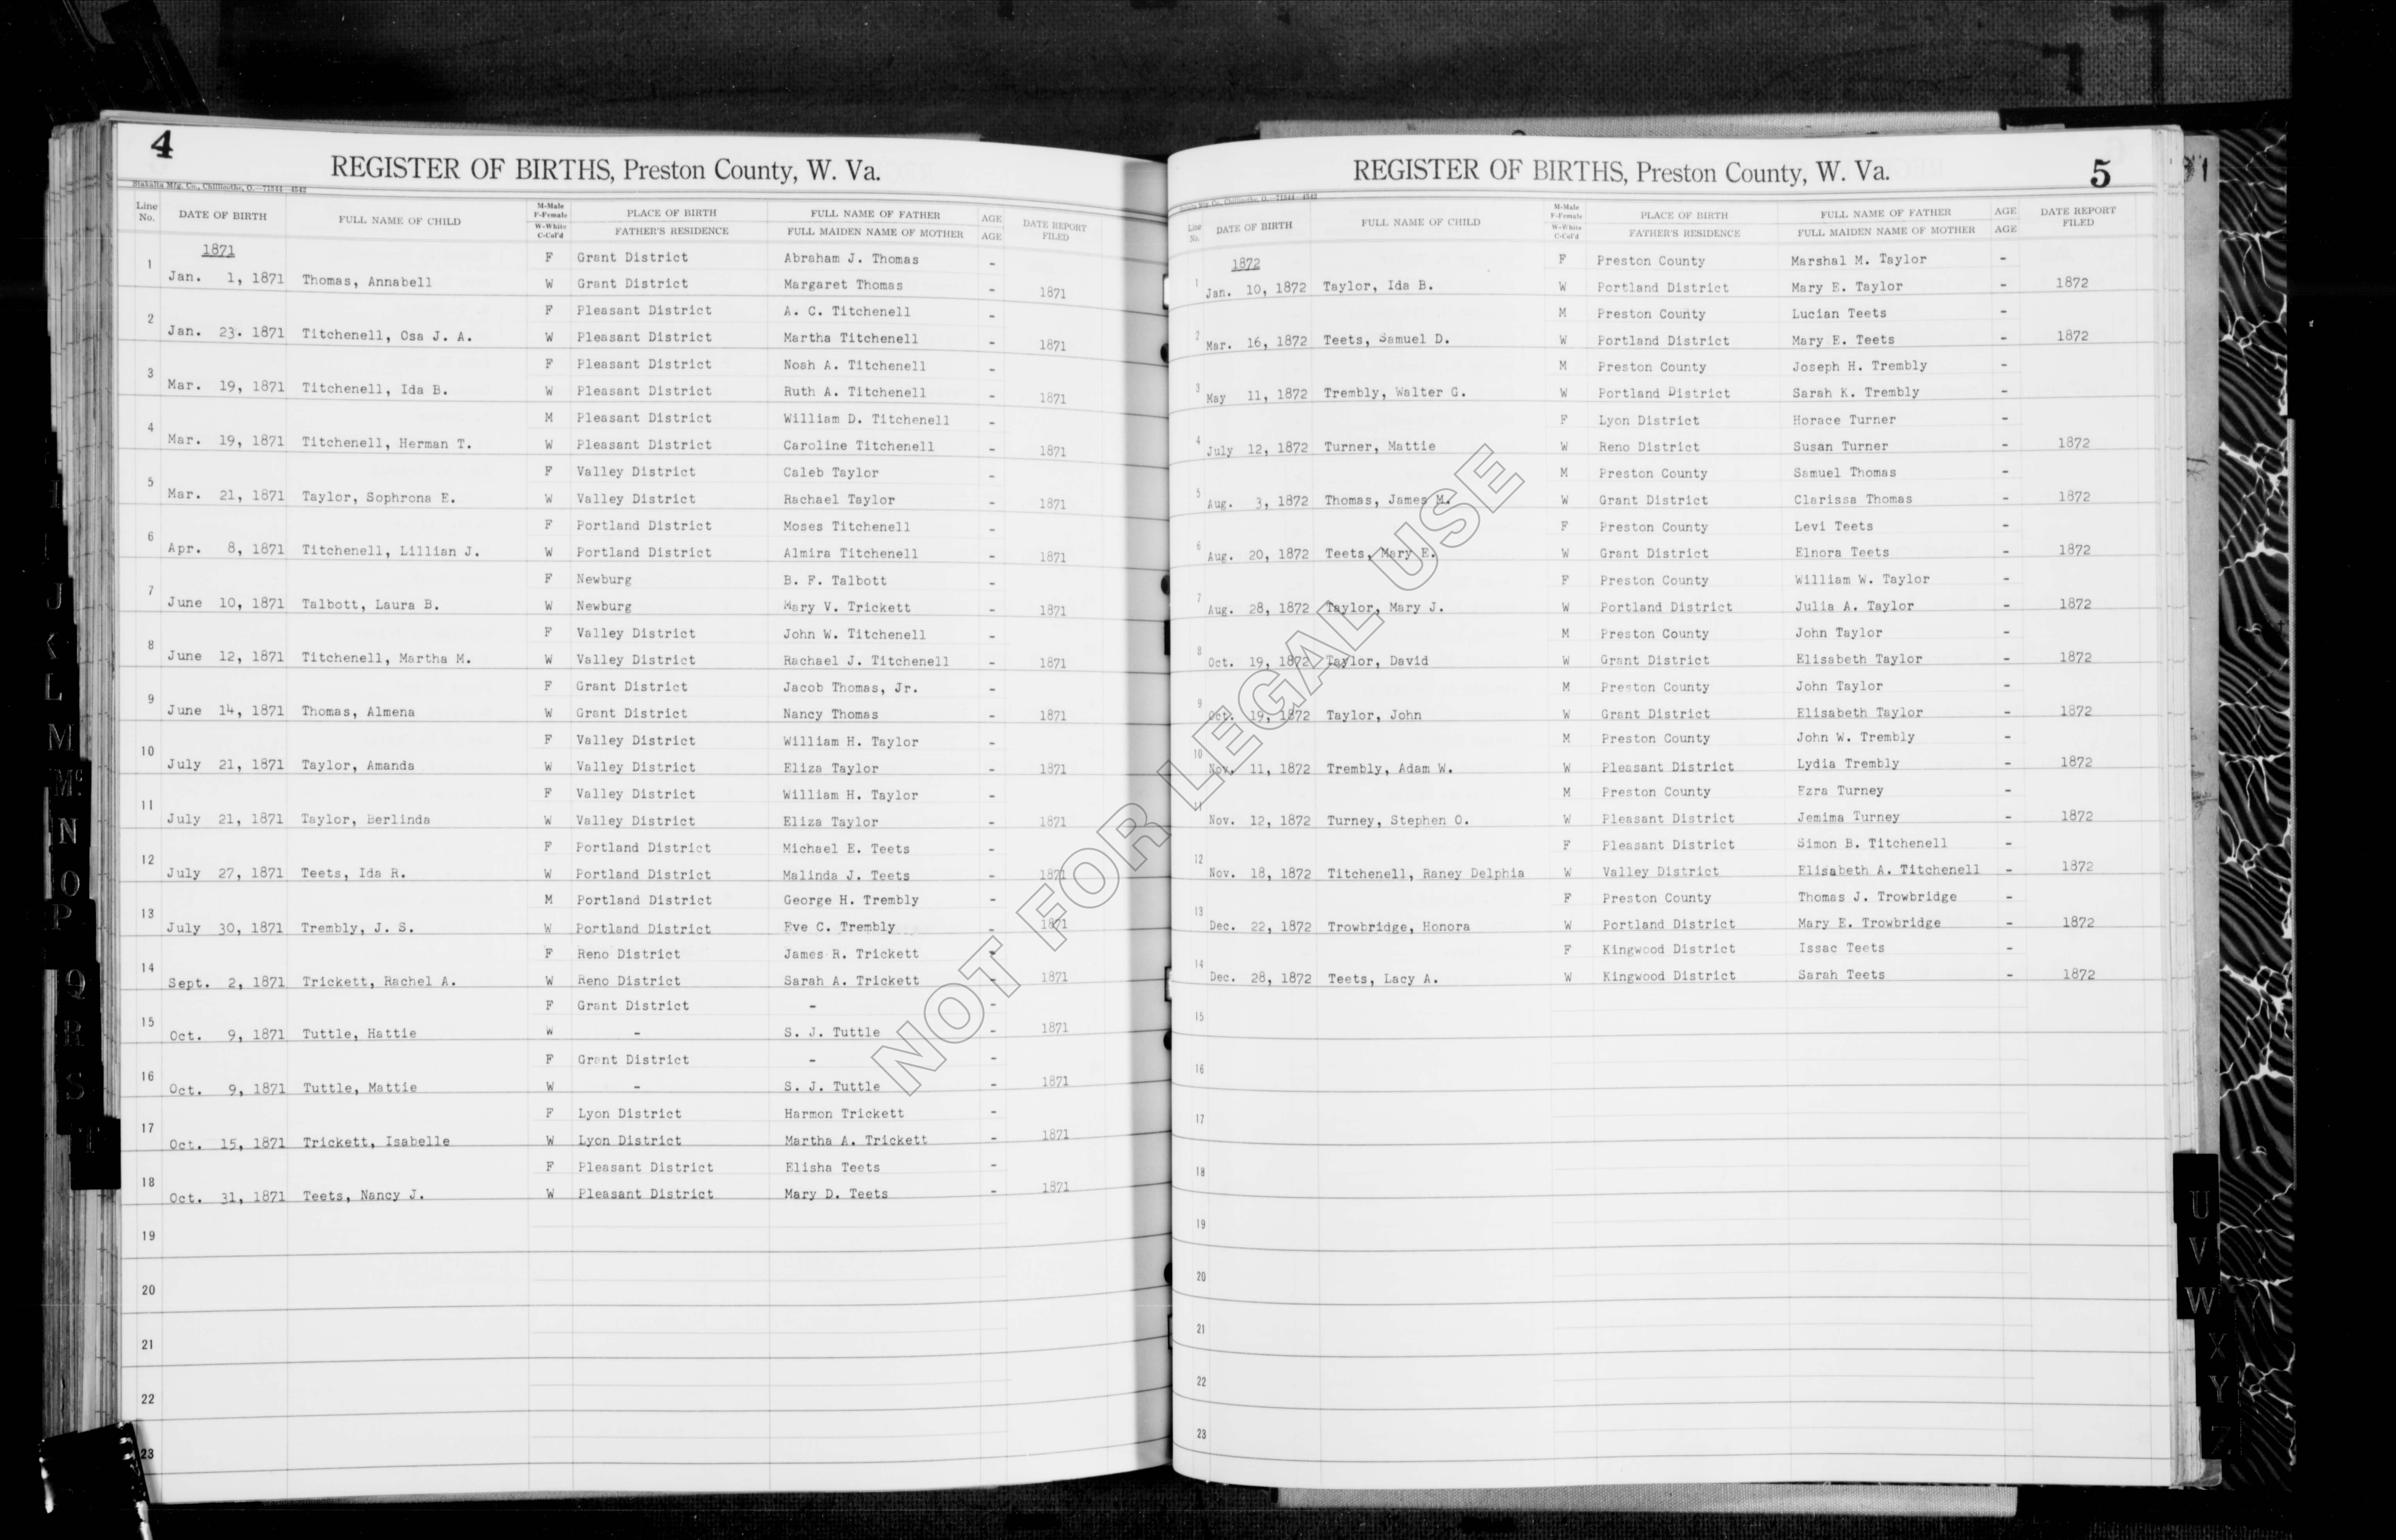 4
REGISTER OF BIRTHS, Preston County, W. Va.
Line No. DATE OF BIRTH FULL NAME OF CHILD M-Male F-Female W-White C-Col'd PLACE OF BIRTH FATHER'S RESIDENCE FULL NAME OF FATHER FULL MAIDEN NAME OF MOTHER AGE AGE DATE REPORT FILED
1871
F Grant District Abraham J. Thomas -
1 Jan. 1, 1871 Thomas, Annabell W Grant District Margaret Thomas - 1871
F Pleasant District A. C. Titchenell -
2 Jan. 23. 1871 Titchenell, Osa J. A. W Pleasant District Martha Titchenell - 1871
F Pleasant District Noah A. Titchenell -
3 Mar. 19, 1871 Titchenell, Ida B. W Pleasant District Ruth A. Titchenell - 1871
M Pleasant District William D. Titchenell -
4 Mar. 19, 1871 Titchenell, Herman T. W Pleasant District Caroline Titchenell - 1871
F Valley District Caleb Taylor -
5 Mar. 21, 1871 Taylor, Sophrona E. W Valley District Rachael Taylor - 1871
F Portland District Moses Titchenell -
6 Apr. 8, 1871 Titchenell, Lillian J. W Portland District Almira Titchenell - 1871
F Newburg B. F. Talbott -
7 June 10, 1871 Talbott, Laura B. W Newburg Mary V. Trickett - 1871
F Valley District John W. Titchenell -
8 June 12, 1871 Titchenell, Martha M. W Valley District Rachael J. Titchenell - 1871
F Grant District Jacob Thomas, Jr. -
9 June 14, 1871 Thomas, Almena W Grant District Nancy Thomas - 1871
F Valley District William H. Taylor -
10 July 21, 1871 Taylor, Amanda W Valley District Eliza Taylor - 1871
F Valley District William H. Taylor -
11 July 21, 1871 Taylor, Berlinda W Valley District Eliza Taylor - 1871
F Portland District Michael E. Teets -
12 July 27, 1871 Teets, Ida R. W Portland District Malinda J. Teets - 1871
M Portland District George H. Trembly -
13 July 30, 1871 Trembly, J. S. W Portland District Eve C. Trembly - 1871
F Reno District James R. Trickett -
14 Sept. 2, 1871 Trickett, Rachel A. W Reno District Sarah A. Trickett - 1871
F Grant District - -
15 Oct. 9, 1871 Tuttle, Hattie W - S. J. Tuttle - 1871
F Grant District - -
16 Oct. 9, 1871 Tuttle, Mattie W - S. J. Tuttle - 1871
F Lyon District Harmon Trickett -
17 Oct. 15, 1871 Trickett, Isabelle W Lyon District Martha A. Trickett - 1871
F Pleasant District Elisha Teets -
18 Oct. 31, 1871 Teets, Nancy J. W Pleasant District Mary D. Teets - 1871
19
20
21
22
23
REGISTER OF BIRTHS, Preston County, W. Va.
5
Line No. DATE OF BIRTH FULL NAME OF CHILD M-Male F-Female W-White C-Col'd PLACE OF BIRTH FATHER'S RESIDENCE FULL NAME OF FATHER FULL MAIDEN NAME OF MOTHER AGE AGE DATE REPORT FILED
1872
F Preston County Marshal M. Taylor -
1 Jan. 10, 1872 Taylor, Ida B. W Portland District Mary E. Taylor - 1872
M Preston County Lucian Teets -
2 Mar. 16, 1872 Teets, Samuel D. W Portland District Mary E. Teets - 1872
M Preston County Joseph H. Trembly -
3 May 11, 1872 Trembly, Walter G. W Portland District Sarah K. Trembly -
F Lyon District Horace Turner -
4 July 12, 1872 Turner, Mattie W Reno District Susan Turner - 1872
M Preston County Samuel Thomas -
5 Aug. 3, 1872 Thomas, James M. W Grant District Clarissa Thomas - 1872
F Preston County Levi Teets -
6 Aug. 20, 1872 Teets, Mary E. W Grant District Elnora Teets - 1872
F Preston County William W. Taylor -
7 Aug. 28, 1872 Taylor, Mary J. W Portland District Julia A. Taylor - 1872
M Preston County John Taylor -
8 Oct. 19, 1872 Taylor, David W Grant District Elisabeth Taylor - 1872
M Preston County John Taylor -
9 Oct. 19, 1872 Taylor, John W Grant District Elisabeth Taylor - 1872
M Preston County John W. Trembly -
10 Nov. 11, 1872 Trembly, Adam W. W Pleasant District Lydia Trembly - 1872
M Preston County Ezra Turney -
11 Nov. 12, 1872 Turney, Stephen O. W Pleasant District Jemima Turney - 1872
F Pleasant District Simon B. Titchenell -
12 Nov. 18, 1872 Titchenell, Raney Delphia W Valley District Elisabeth A. Titchenell - 1872
F Preston County Thomas J. Trowbridge -
13 Dec. 22, 1872 Trowbridge, Honora W Portland District Mary E. Trowbridge - 1872
F Kingwood District Issac Teets -
14 Dec. 28, 1872 Teets, Lacy A. W Kingwood District Sarah Teets - 1872
15
16
17
18
19
20
21
22
23
NOT FOR LEGAL USE
J
K
L
M
Mc
N
O
P
Q
R
S
T
U
V
W
X
Y
Z